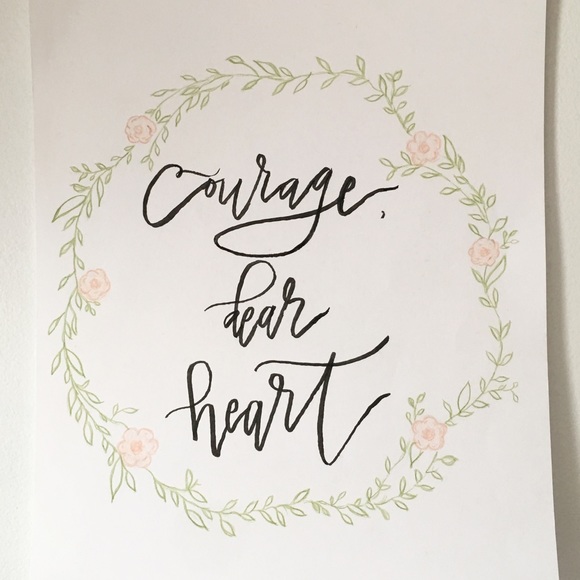 courage,
dear
heart